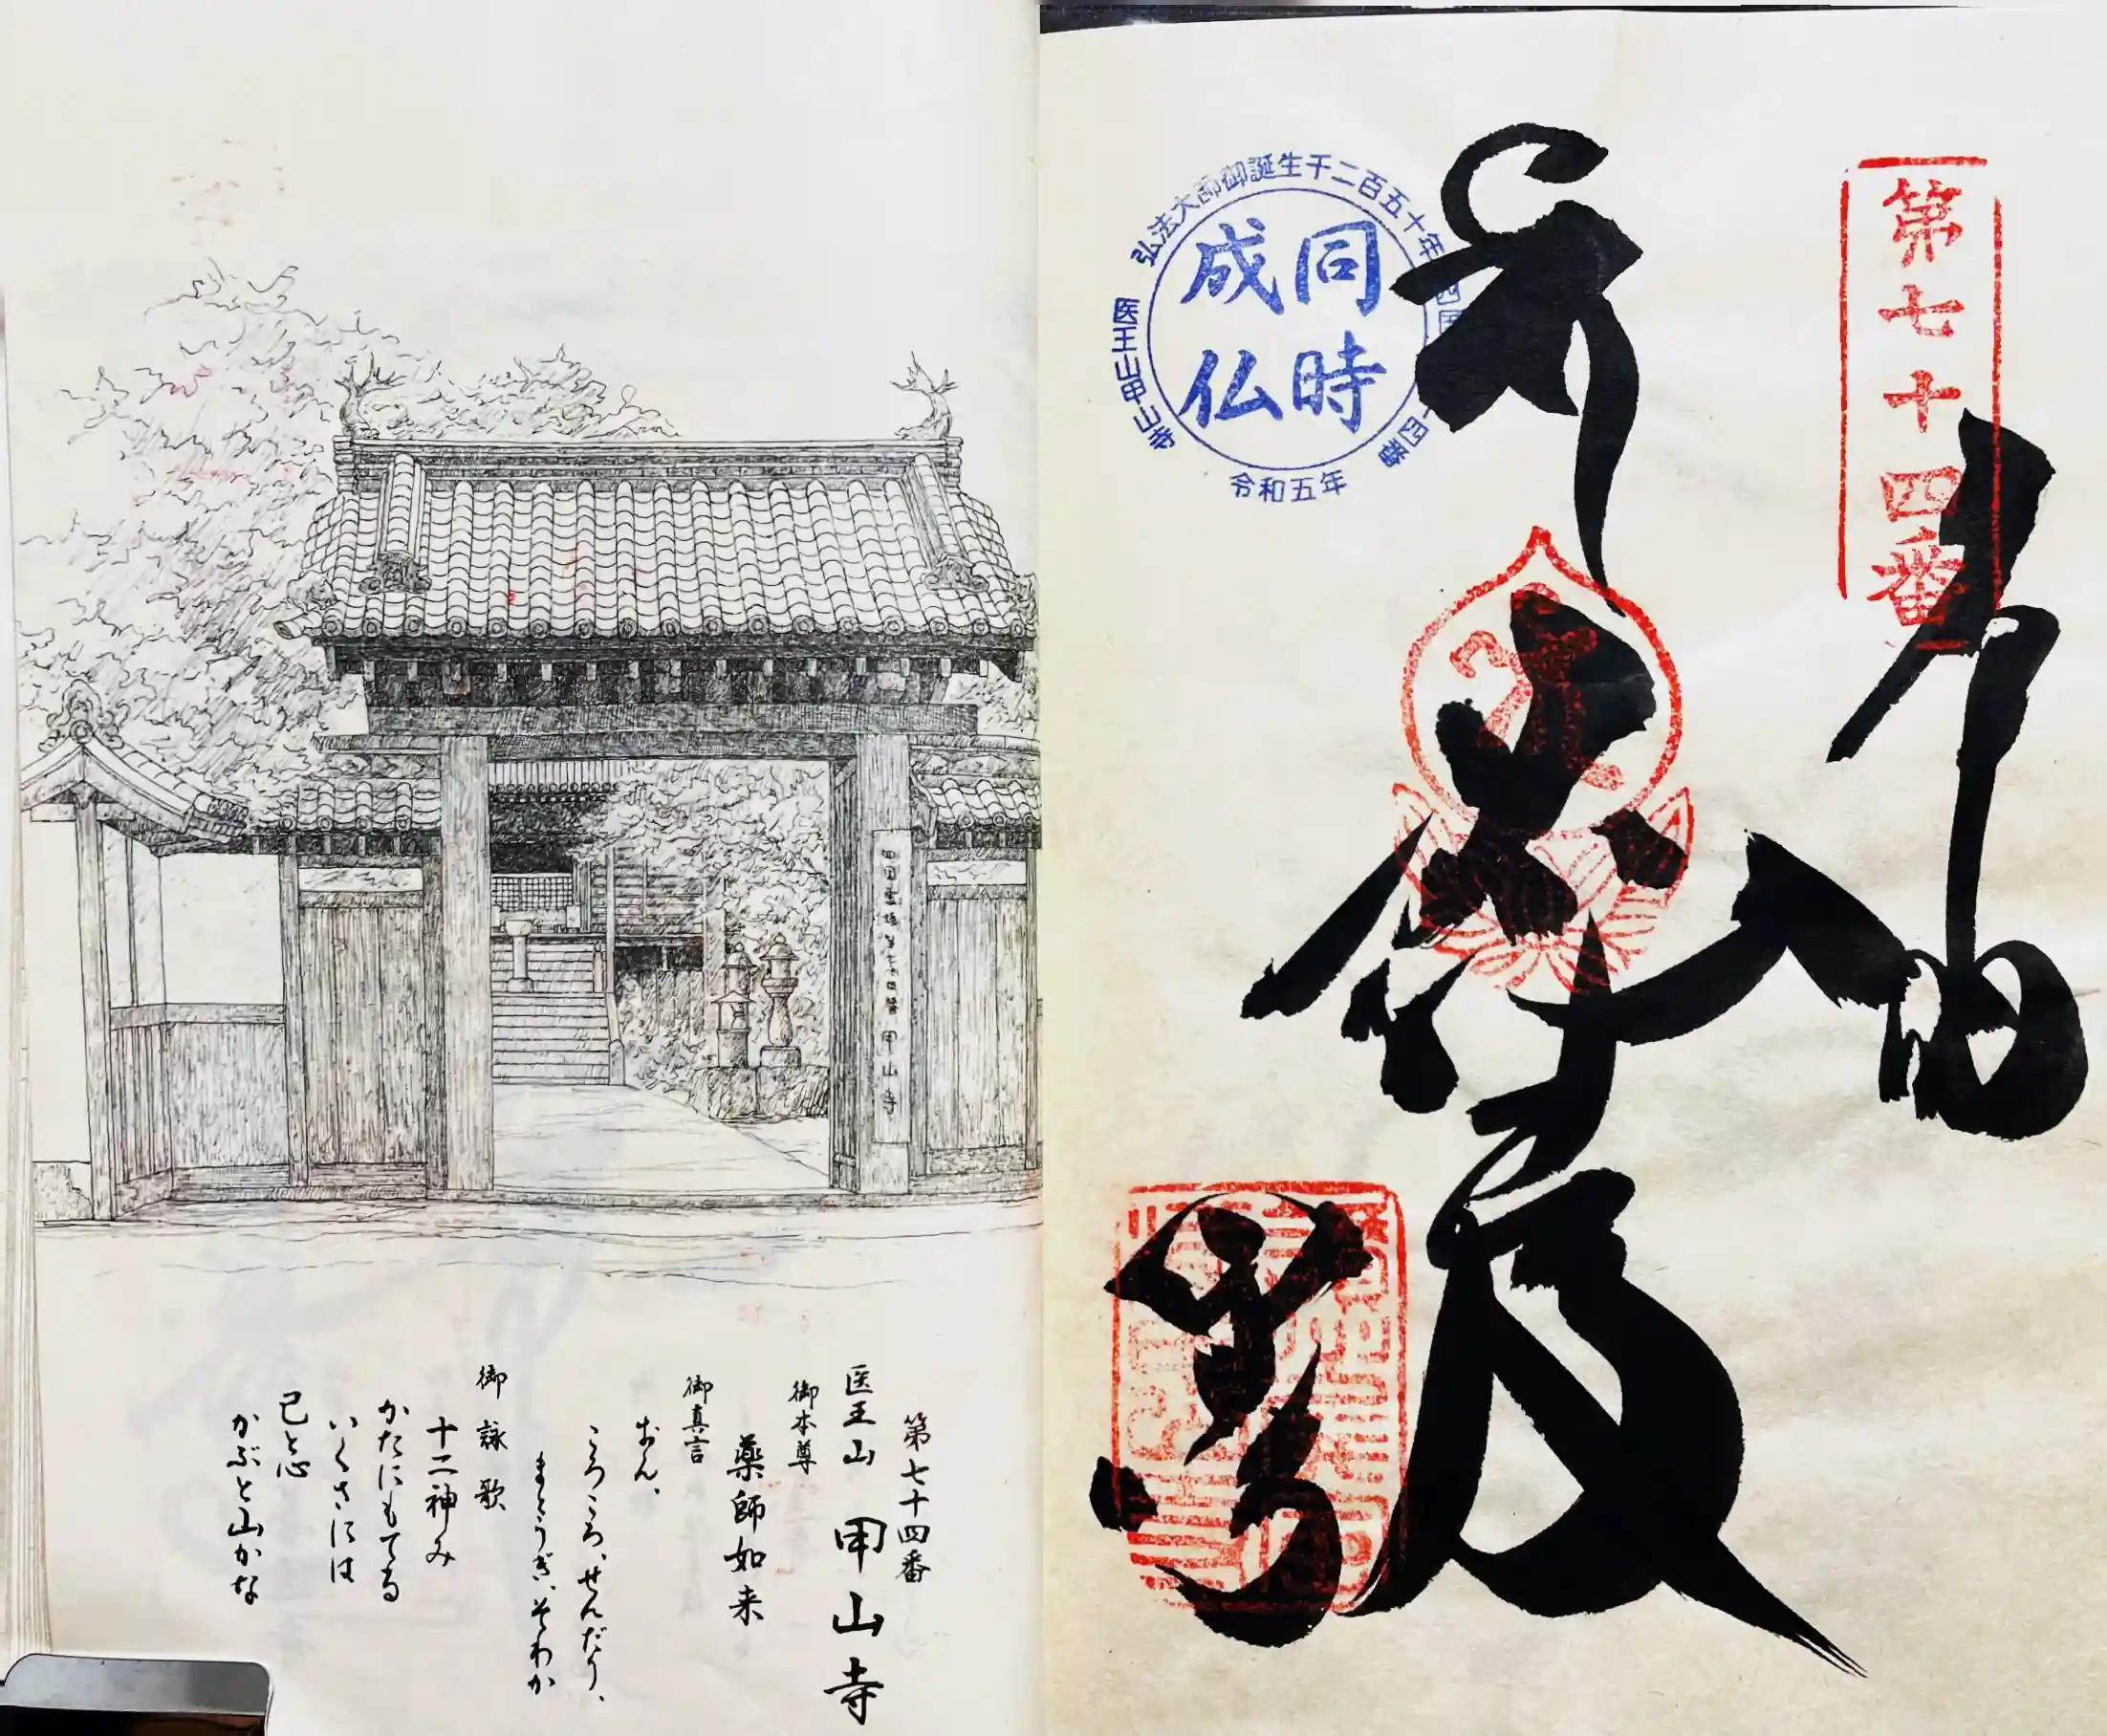 第七十四番
奉納
弘法大師御誕生千二百五十年
四国
十四番
医王山甲山寺
令和五年
同時
成仏
甲山寺
第七十四番
医王山 甲山寺
御本尊
薬師如来
御真言
おん、
ころころ、せんだり、
まとうぎ、そわか
御詠歌
十二神み
かたにもてる
いくさには
己と心
かぶと山かな
四国霊場第七十四番 甲山寺